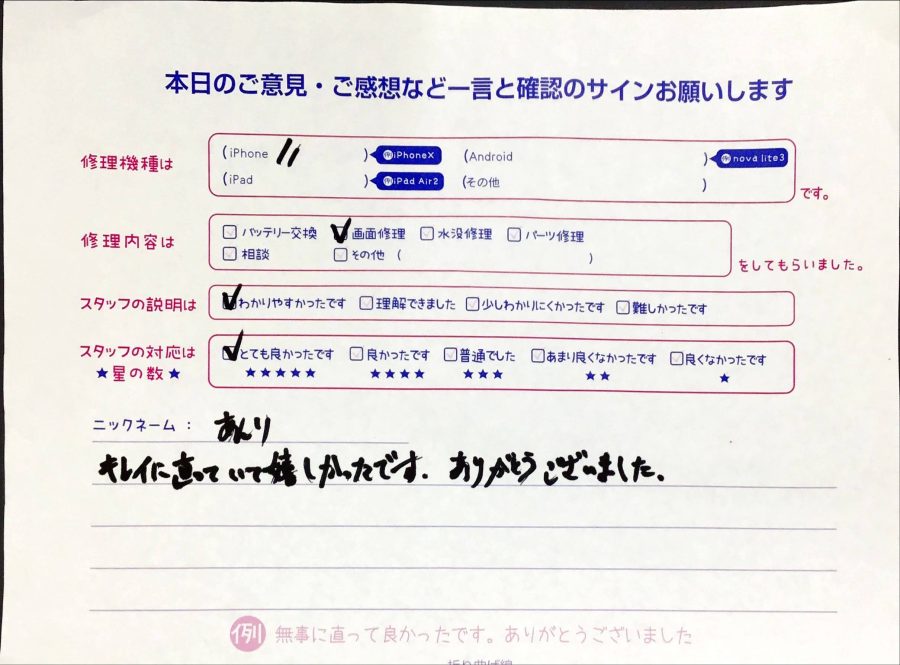 本日のご意見・ご感想など一言と確認のサインお願いします
修理機種は (iPhone 11 ) 例iPhoneX (Android ) 例nova lite3
(iPad ) 例iPad Air2 (その他 ) です。
修理内容は バッテリー交換 画面修理 水没修理 パーツ修理
相談 その他 ( ) をしてもらいました。
スタッフの説明は わかりやすかったです 理解できました 少しわかりにくかったです 難しかったです
スタッフの対応は とても良かったです 良かったです 普通でした あまり良くなかったです 良くなかったです
★星の数★ ★★★★★ ★★★★ ★★★ ★★ ★
ニックネーム: あんり
キレイに直っていて嬉しかったです. ありがとうございました。
例 無事に直って良かったです。ありがとうございました